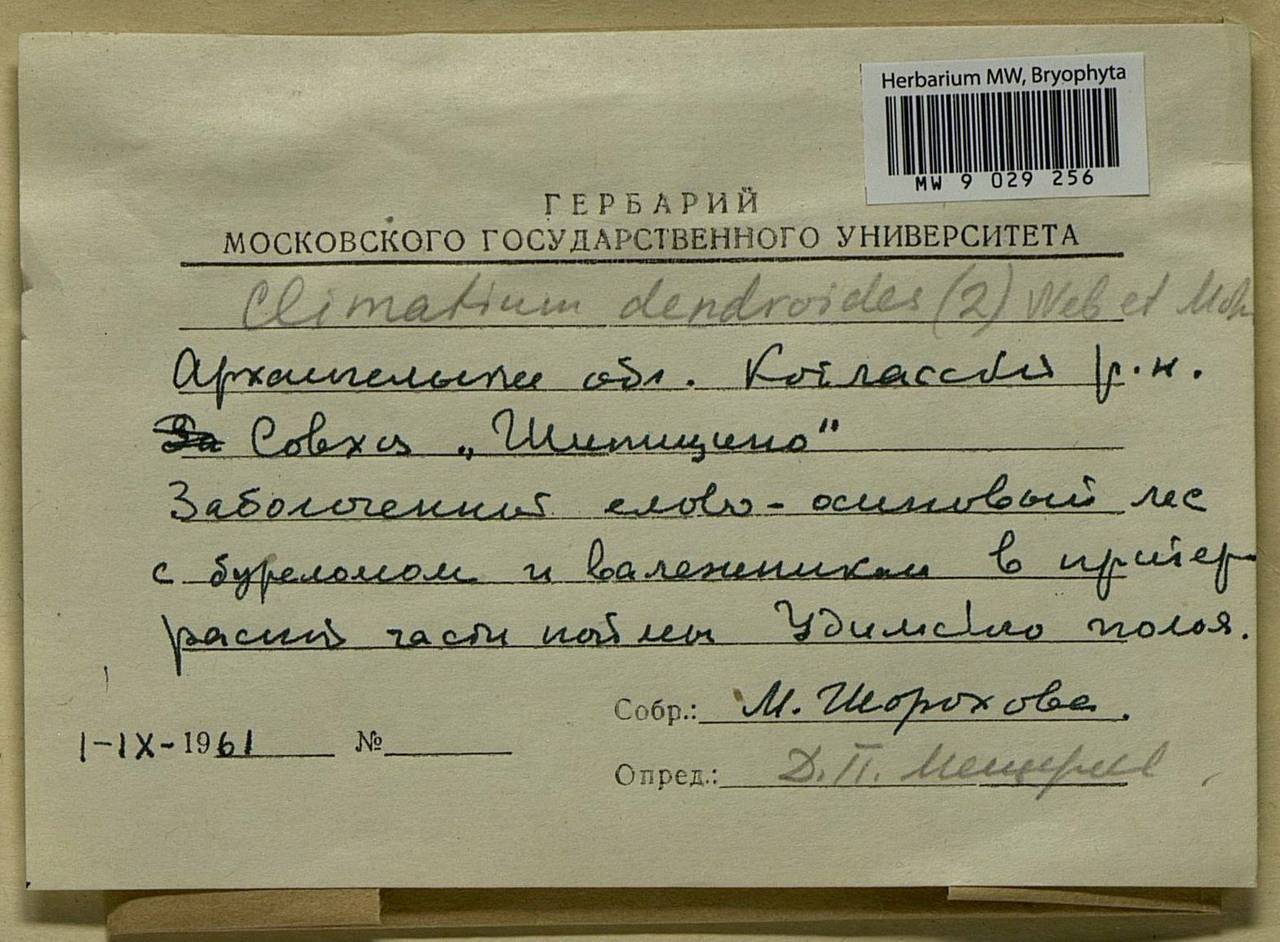 Herbarium MW, Bryophyta
MW 9 029 256
ГЕРБАРИЙ
МОСКОВСКОГО ГОСУДАРСТВЕННОГО УНИВЕРСИТЕТА
Climatium dendroides (2) Web et Mohr
Архангельская обл. Котласский р-н.
Совхоз „Шипицыно"
Заболоченный елово-осиновый лес
с буреломом и валежником в притер-
расной части поймы Удимского полоя.
Собр.: М. Шорохова.
1-IX-1961 №
Опред.: Д.П.